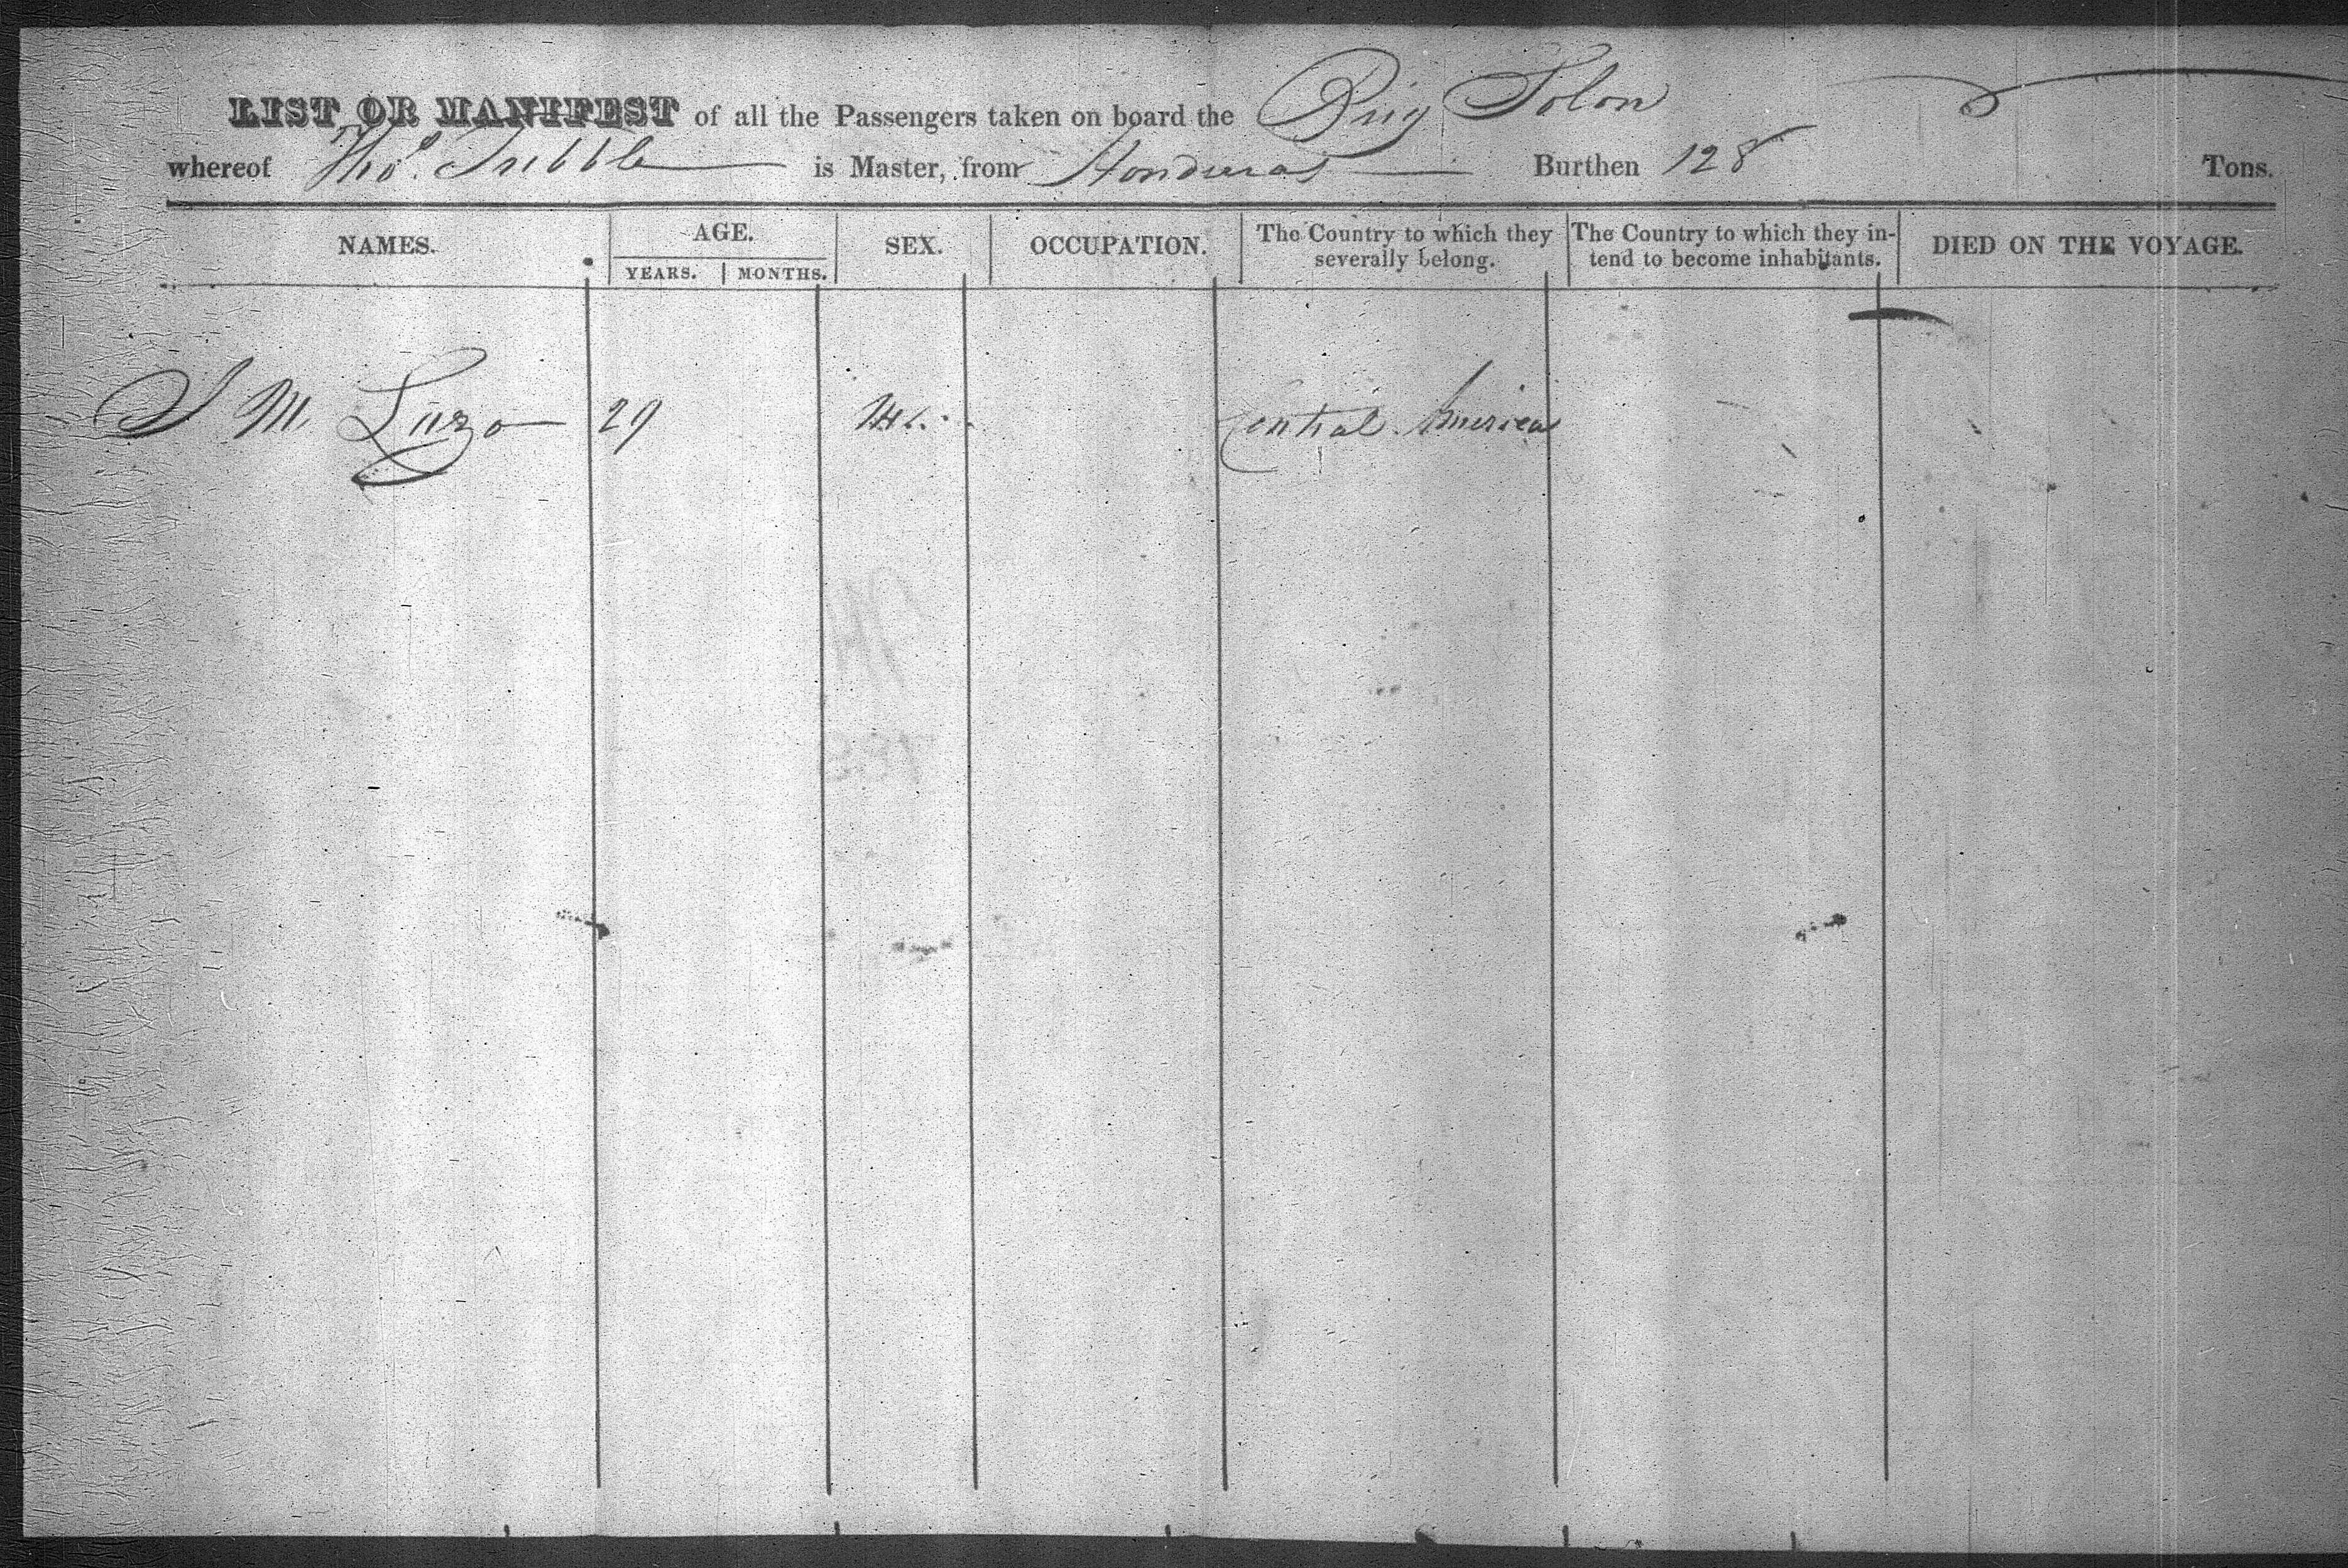 LIST OR MANIFEST of all the Passengers taken on board the Brig Solon
whereof Thos. Tribble is Master, from Honduras Burthen 128 Tons.
NAMES. AGE. SEX. OCCUPATION. The Country to which they severally belong. The Country to which they intend to become inhabitants. DIED ON THE VOYAGE.
YEARS. MONTHS.
J M Luzo 29 M. Central America